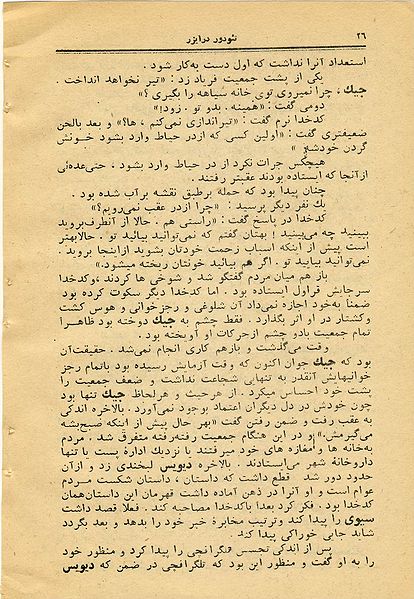 ۲۶
تئودور درایزر
استعداد آنرا نداشت که اول دست به‌کار شود .
یکی از پشت جمعیت فریاد زد : «تیر نخواهد انداخت .
جیك ، چرا نمیروی توی خانه سیاهه را بگیری ؟»
دومی گفت : «همینه . بدو تو . زود!»
کدخدا نرم گفت : «تیراندازی نمی‌کنم ، ها؟» و بعد بالحن
ضعیفتری گفت : «اولین کسی که ازدر حیاط وارد بشود خونش
گردن خودشه »
هیچکس جرات نکرد از در حیاط وارد بشود ، حتی‌عده‌ئی
ازآنجا که ایستاده بودند عقبتر رفتند .
چنان پیدا بود که حمله برطبق نقشه برآب شده بود .
یك نفر دیگر پرسید : «چرا ازدر عقب نمی‌رویم؟»
کدخدا در پاسخ گفت : «راستی هم . حالا از آنطرف‌بروید
ببینید چه می‌بینید ! بهتان گفتم که نمی‌توانید بیائید تو . حالابهتر
است پیش از اینکه اسباب زحمت خودتان بشوید ازاینجا بروید .
نمی‌توانید بیائید تو . اگر هم بیائید خونتان ریخته میشود.»
باز هم میان مردم گفتگو شد و شوخی ها کردند ،وکدخدا
سرجایش قراول ایستاده بود . اما کدخدا دیگر سکوت کرده بود
ضمناً به‌خود اجازه نمی‌داد آن شلوغی و رجزخوانی و هوس کشت
وکشتار در او اثر بگذارد . فقط چشم به جیك دوخته بود ظاهرا
تمام جمعیت یادو چشم ازحرکات او آویخته بود .
وقت می‌گذشت و بازهم کاری انجام نمی‌شد . حقیقت‌آن
بود که جیك جوان اکنون که وقت آزمایش رسیده بود باتمام رجز
خوانیهایش آنقدر به تنهایی شجاعت نداشت و ضعف جمعیت را
پشت خود احساس میکرد . از هرحیث و هرلحاظ جیك تنها بود
چون خودش در دل دیگران اعتماد بوجود نمی‌آورد . بالاخره اندکی
به عقب رفت و ضمن رفتن گفت «بهر حال پیش از اینکه صبح‌بشه
می‌گیرمش.» و در این هنگام جمعیت رفته‌رفته متفرق شد . مردم
به‌خانه ها و مغازه های خود میرفتند یا نزدیك ادارهٔ پست یا تنها
داروخانهٔ شهر می‌ایستادند . بالاخره دیویس لبخندی زد و ازآن
حدود دور شد قطع داشت که داستان ، داستان شکست مردم
عوام است و او آنرا در ذهن آماده داشت قهرمان این داستان‌همان
کدخدا بود . فکر کرد بعدا باکدخدا مصاحبه کند . فعلا قصد داشت
سیوی را پیدا کند وترتیب مخابرهٔ خبر خود را بدهد و بعد بگردد
شاید جایی خوراکی پیدا کند .
پس از اندکی تجسس تلگرافچی را پیدا کرد و منظور خود
را به او گفت و منظور این بود که تلگرافچی در ضمن که دیویس